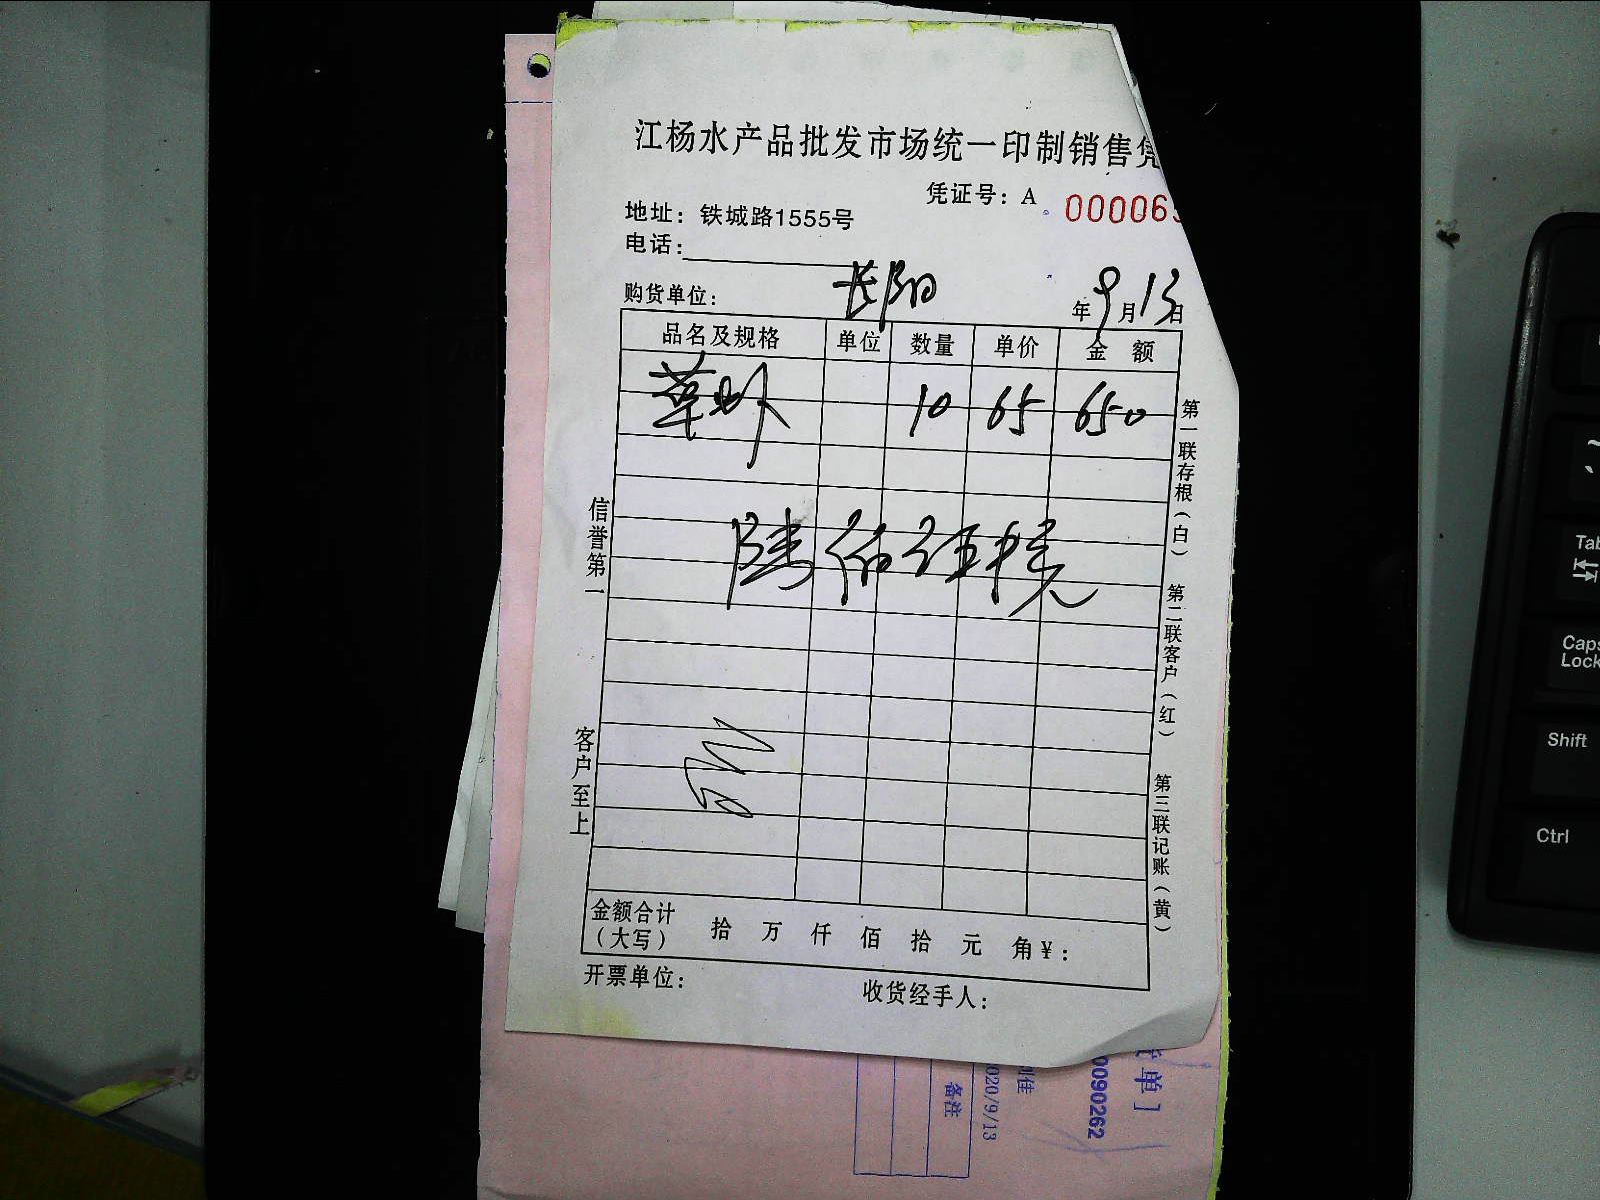 江杨水产品批发市场统一印制销售凭
凭证号：A 000065
地址：铁城路1555号
电话：
购货单位： 长阳
年9月13日
品名及规格 单位 数量 单价 金 额
草虾 10 65 650
陆佰伍拾元
信誉第一
客户至上
第一联存根（白）
第二联客户（红）
第三联记账（黄）
金额合计
（大写） 拾 万 仟 佰 拾 元 角 ¥：
开票单位：
收货经手人：
单］
0090262
2020/9/13
备注
Tab
Caps Lock
Shift
Ctrl